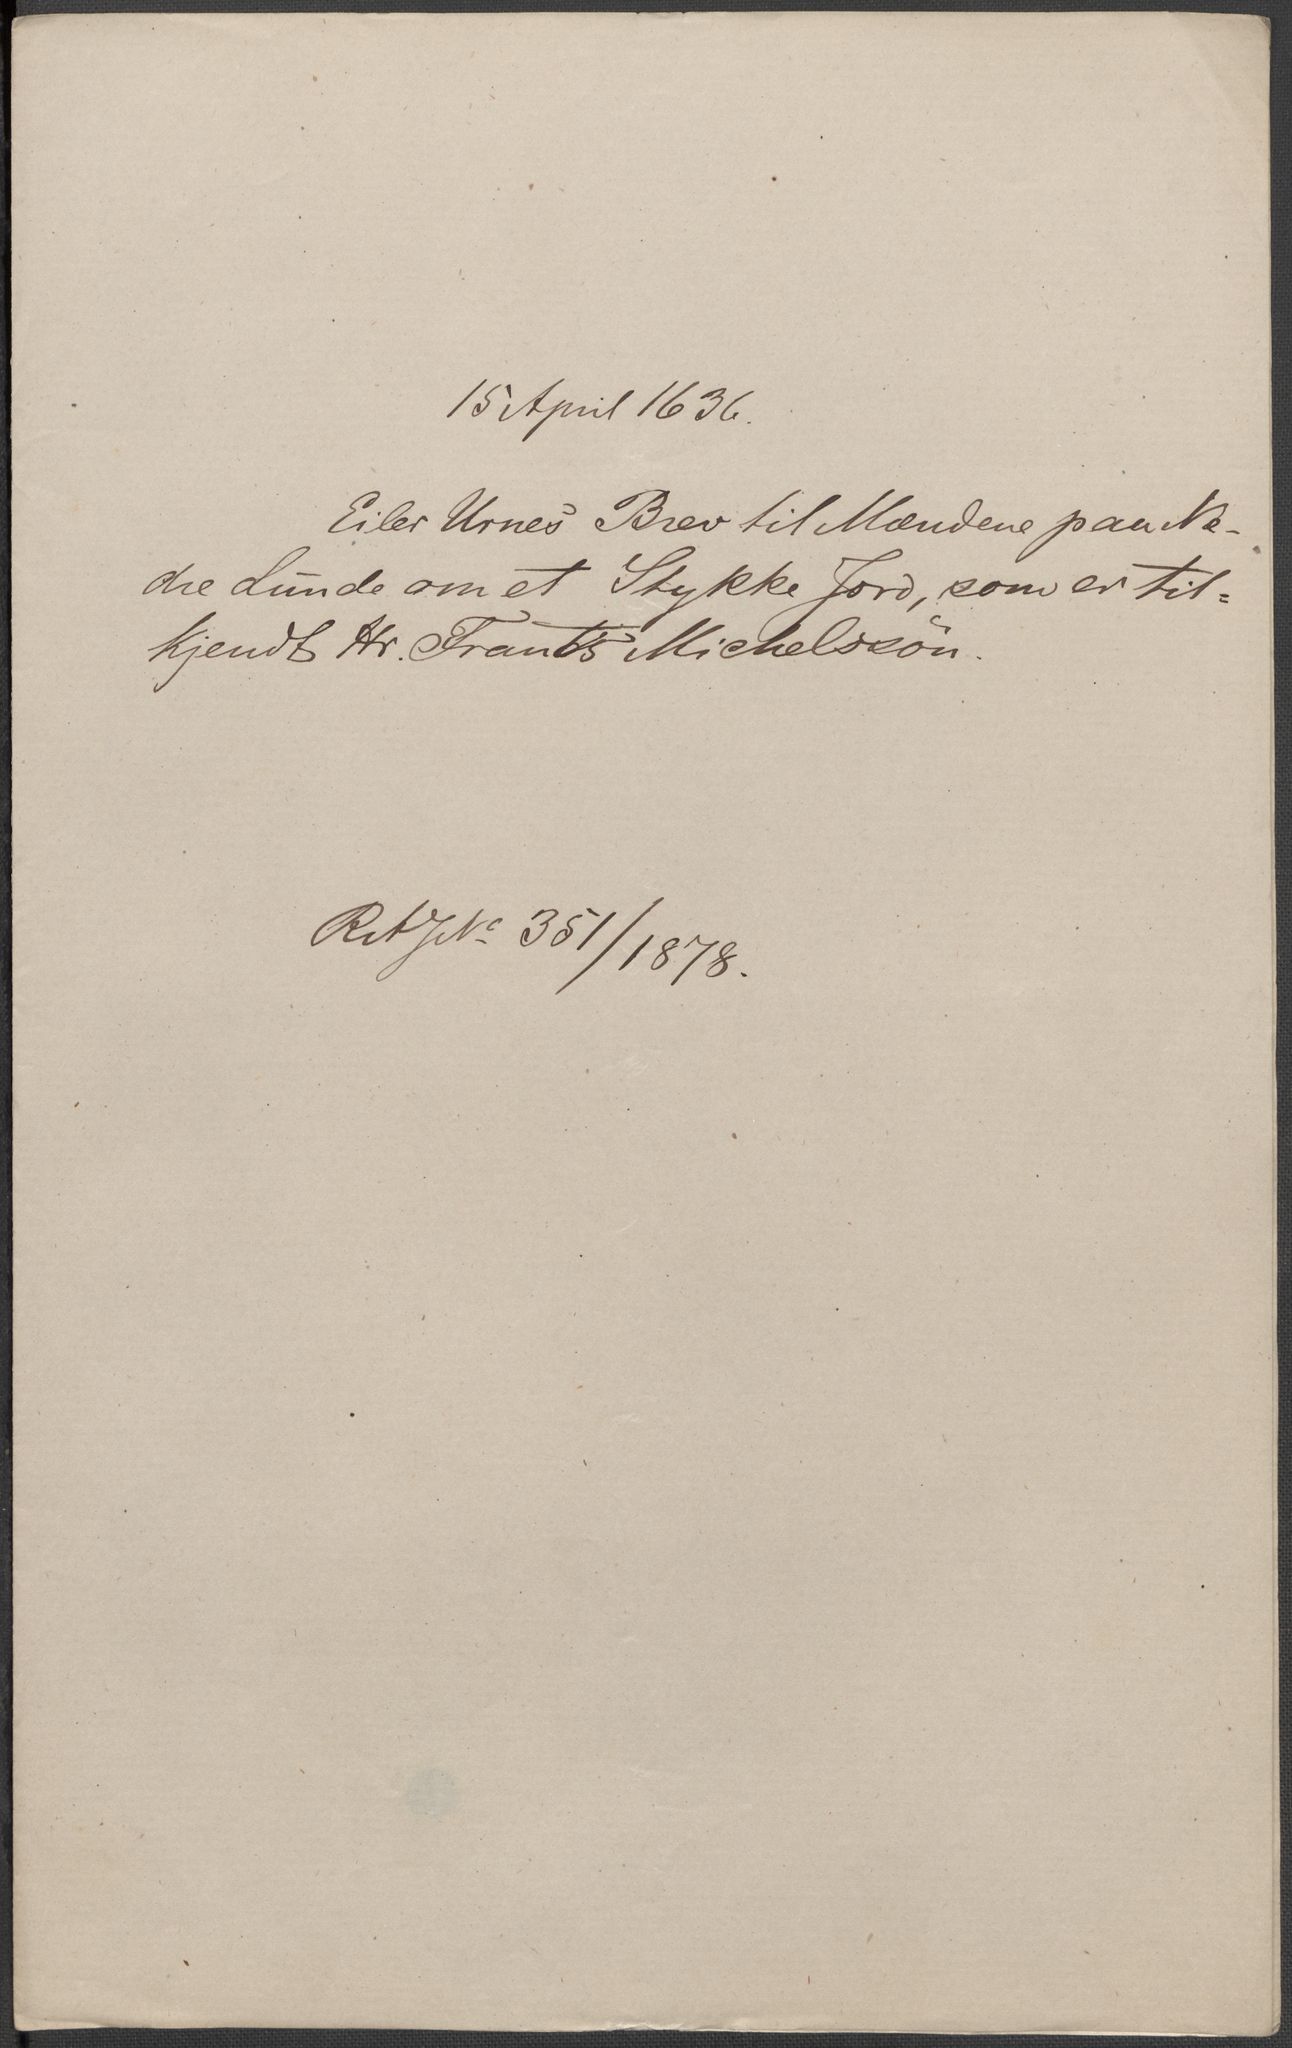 15 April 1636.
Eiler Urnes Brev til Mændene paa Ne-
dre Lunde om et Stykke Jord, som er til=
kjendt Hr. Frants Michelssön.
RAJNo 351/1878.